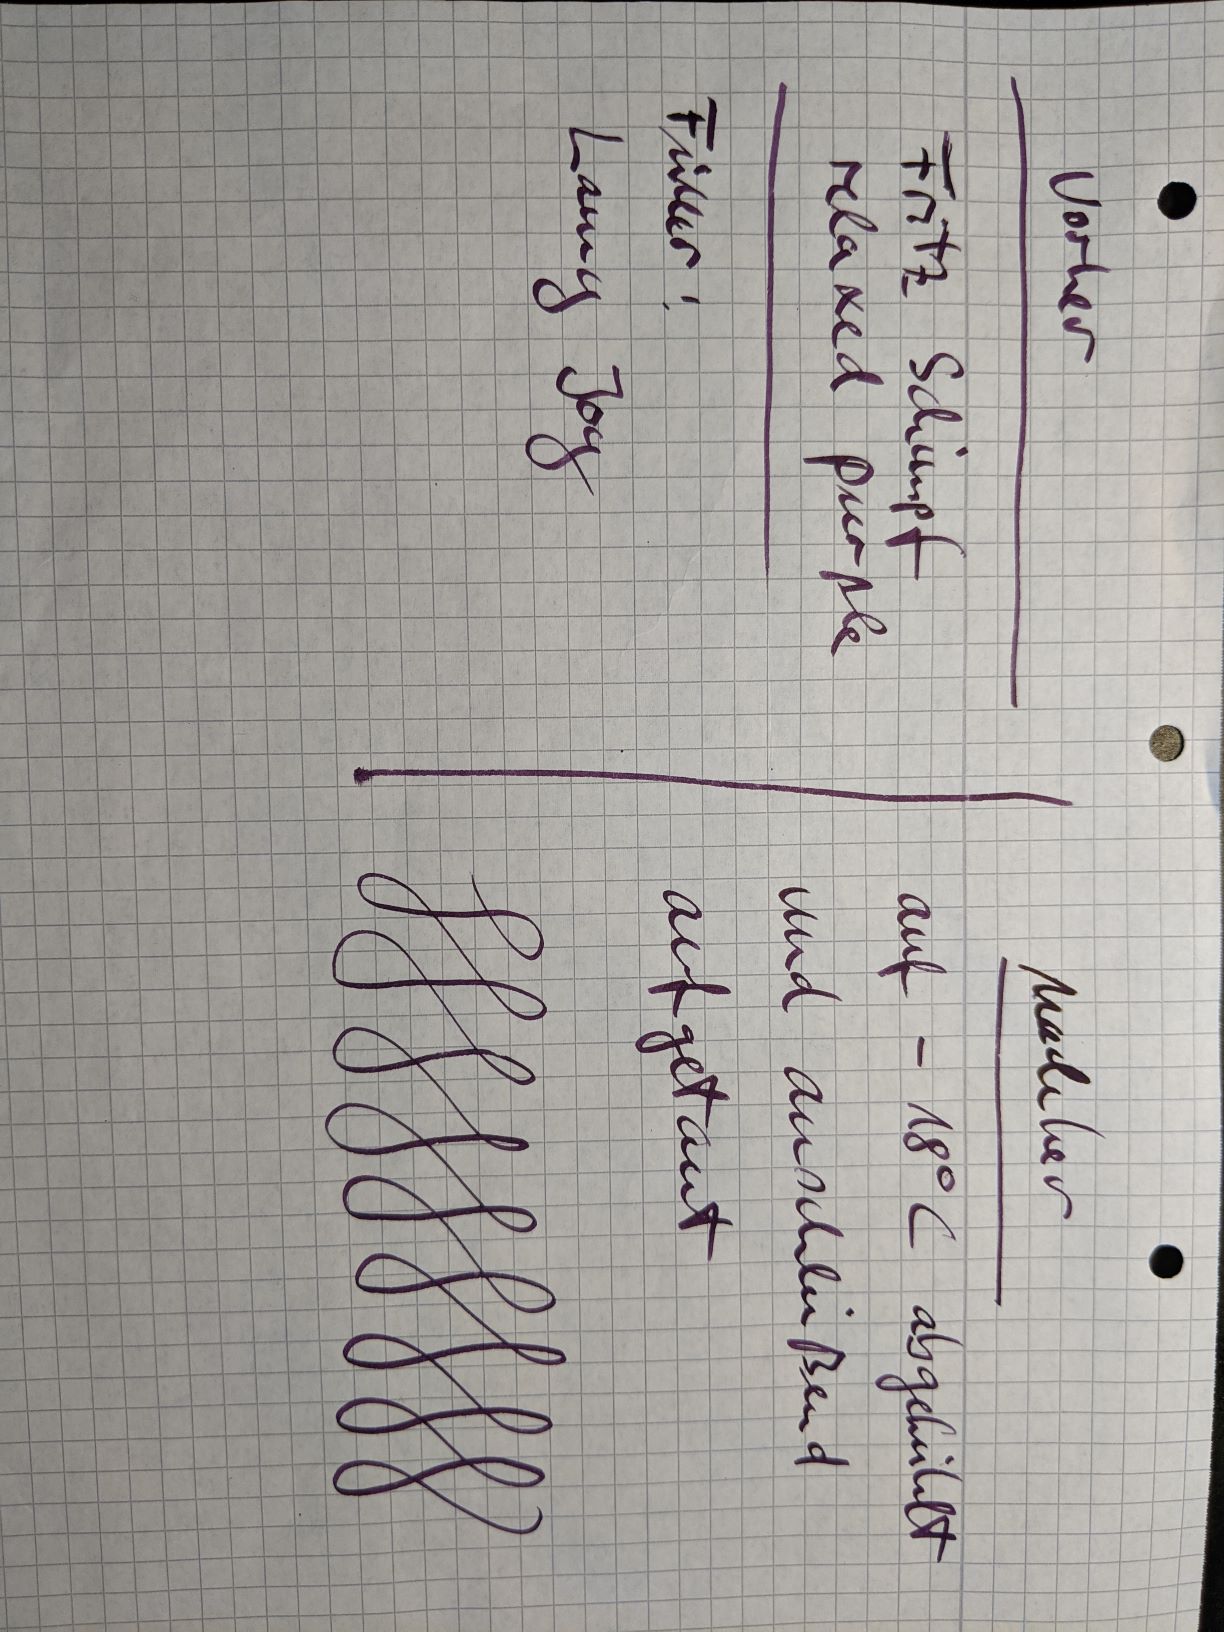 Vorher
Fritz Schimpf
relaxed purple
Füller:
Lamy Joy
Nachher
auf - 18°C abgekühlt
und anschließend
aufgetaut